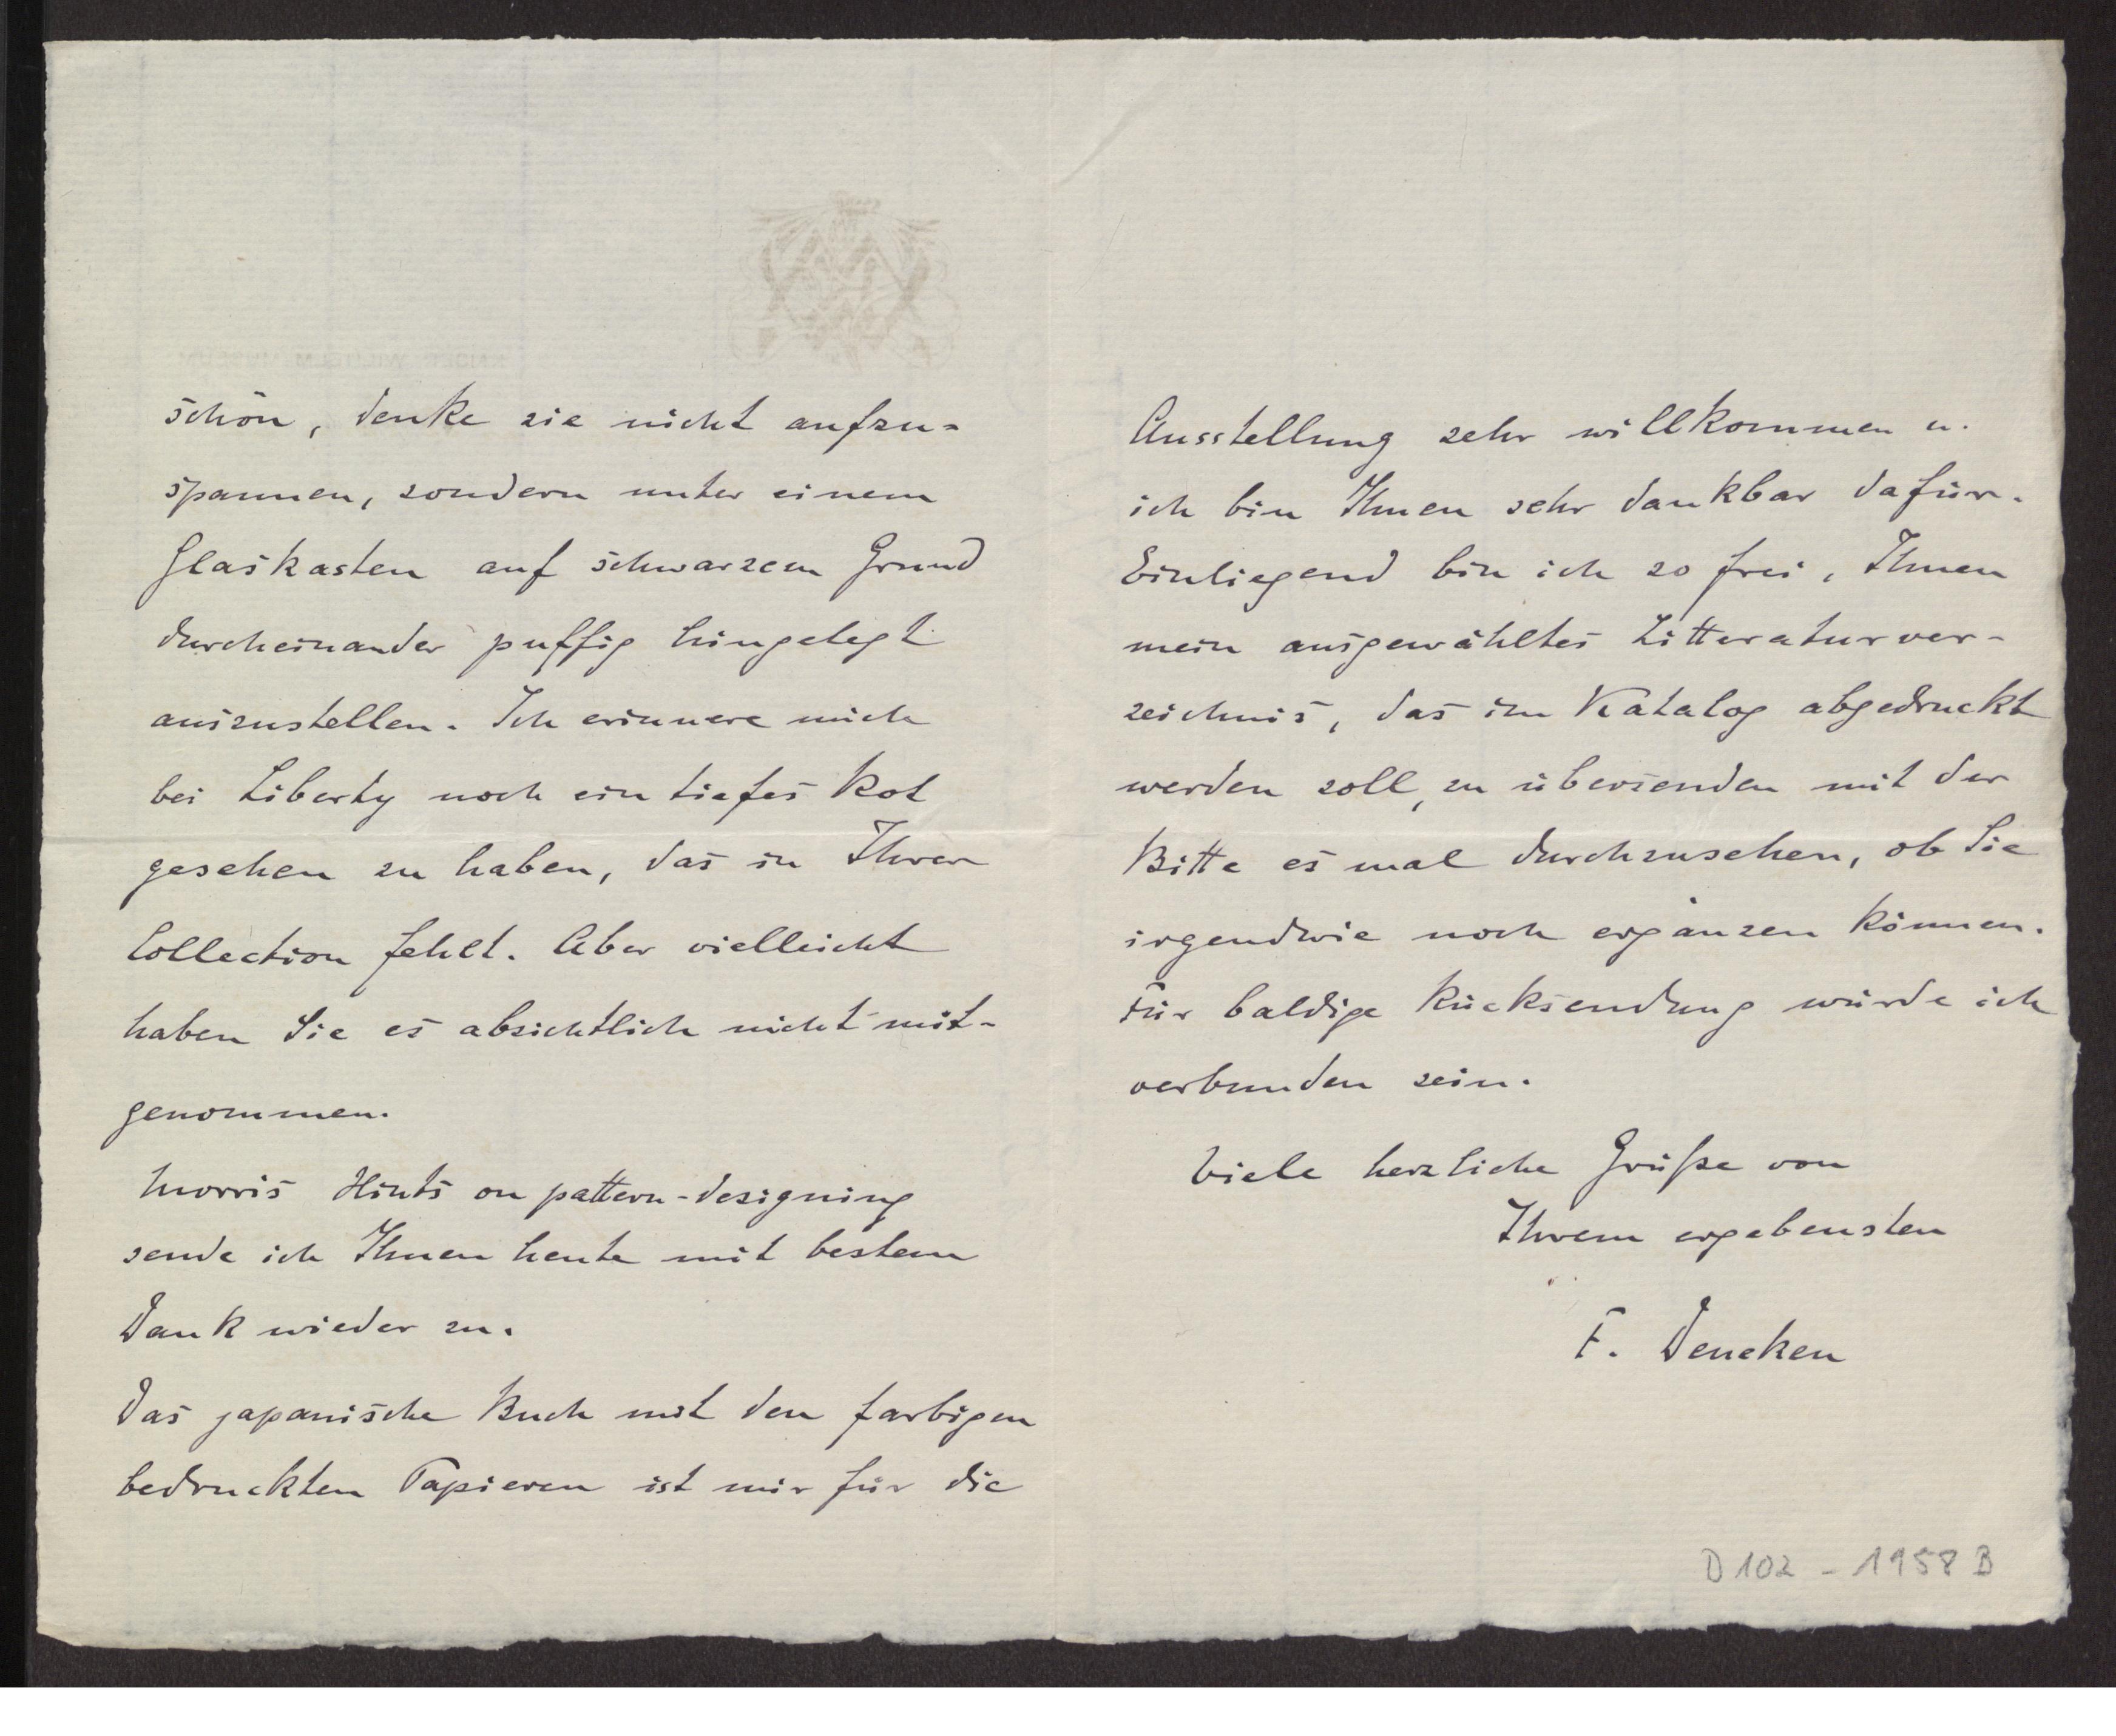 schön, denke sie nicht aufzu-
spannen, sondern unter einem
Glaskasten auf schwarzem Grund
durcheinander puffig hingelegt
auszustellen. Ich erinnere mich
bei Liberty noch ein tiefes Rot
gesehen zu haben, das in Ihrer
Collection fehlt. Aber vielleicht
haben Sie es absichtlich nicht mit-
genommen.
Morris Hints on pattern-designing
sende ich Ihnen heute mit bestem
Dank wieder zu.
Das japanische Buch mit den farbigen
bedruckten Papieren ist mir für die
Ausstellung sehr willkommen u.
ich bin Ihnen sehr dankbar dafür.
Einliegend bin ich so frei, Ihnen
mein ausgewähltes Litteraturver-
zeichnis, das im Katalog abgedruckt
werden soll, zu übersenden mit der
Bitte es mal durchzusehen, ob Sie
irgendwie noch ergänzen können.
Für baldige Rücksendung würde ich
verbunden sein.
Viele herzliche Grüße von
Ihrem ergebensten
F. Deneken
D 102 - 1958 B